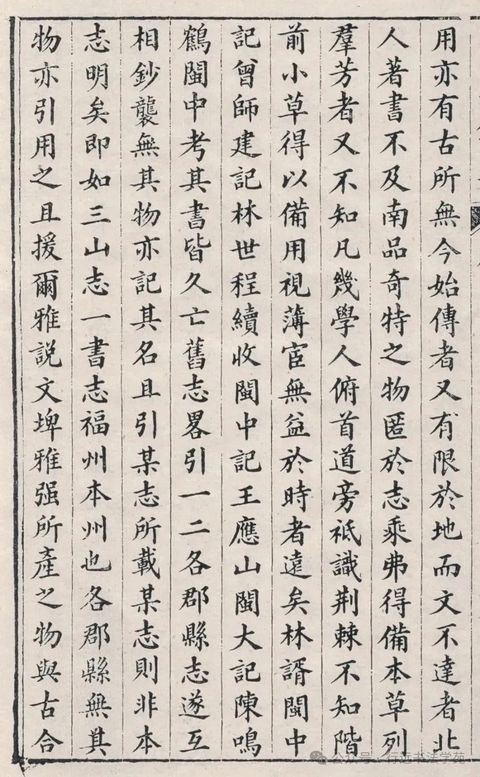 用亦有古所無今始傳者又有限於地而文不達者北
人著書不及南品奇特之物匿於志乘弗得備本草列
羣芳者又不知凡幾學人俯首道旁祗識荆棘不知階
前小草得以備用視薄宦無益於時者遠矣林諝閩中
記曾師建記林世程續收閩中記王應山閩大記陳鳴
鶴閩中考其書皆久亡舊志畧引一二各郡縣志遂互
相鈔襲無其物亦記其名且引某志所載某志則非本
志明矣即如三山志一書志福州本州也各郡縣無其
物亦引用之且援爾雅説文埤雅强所產之物與古合
公众号·行远书法学苑